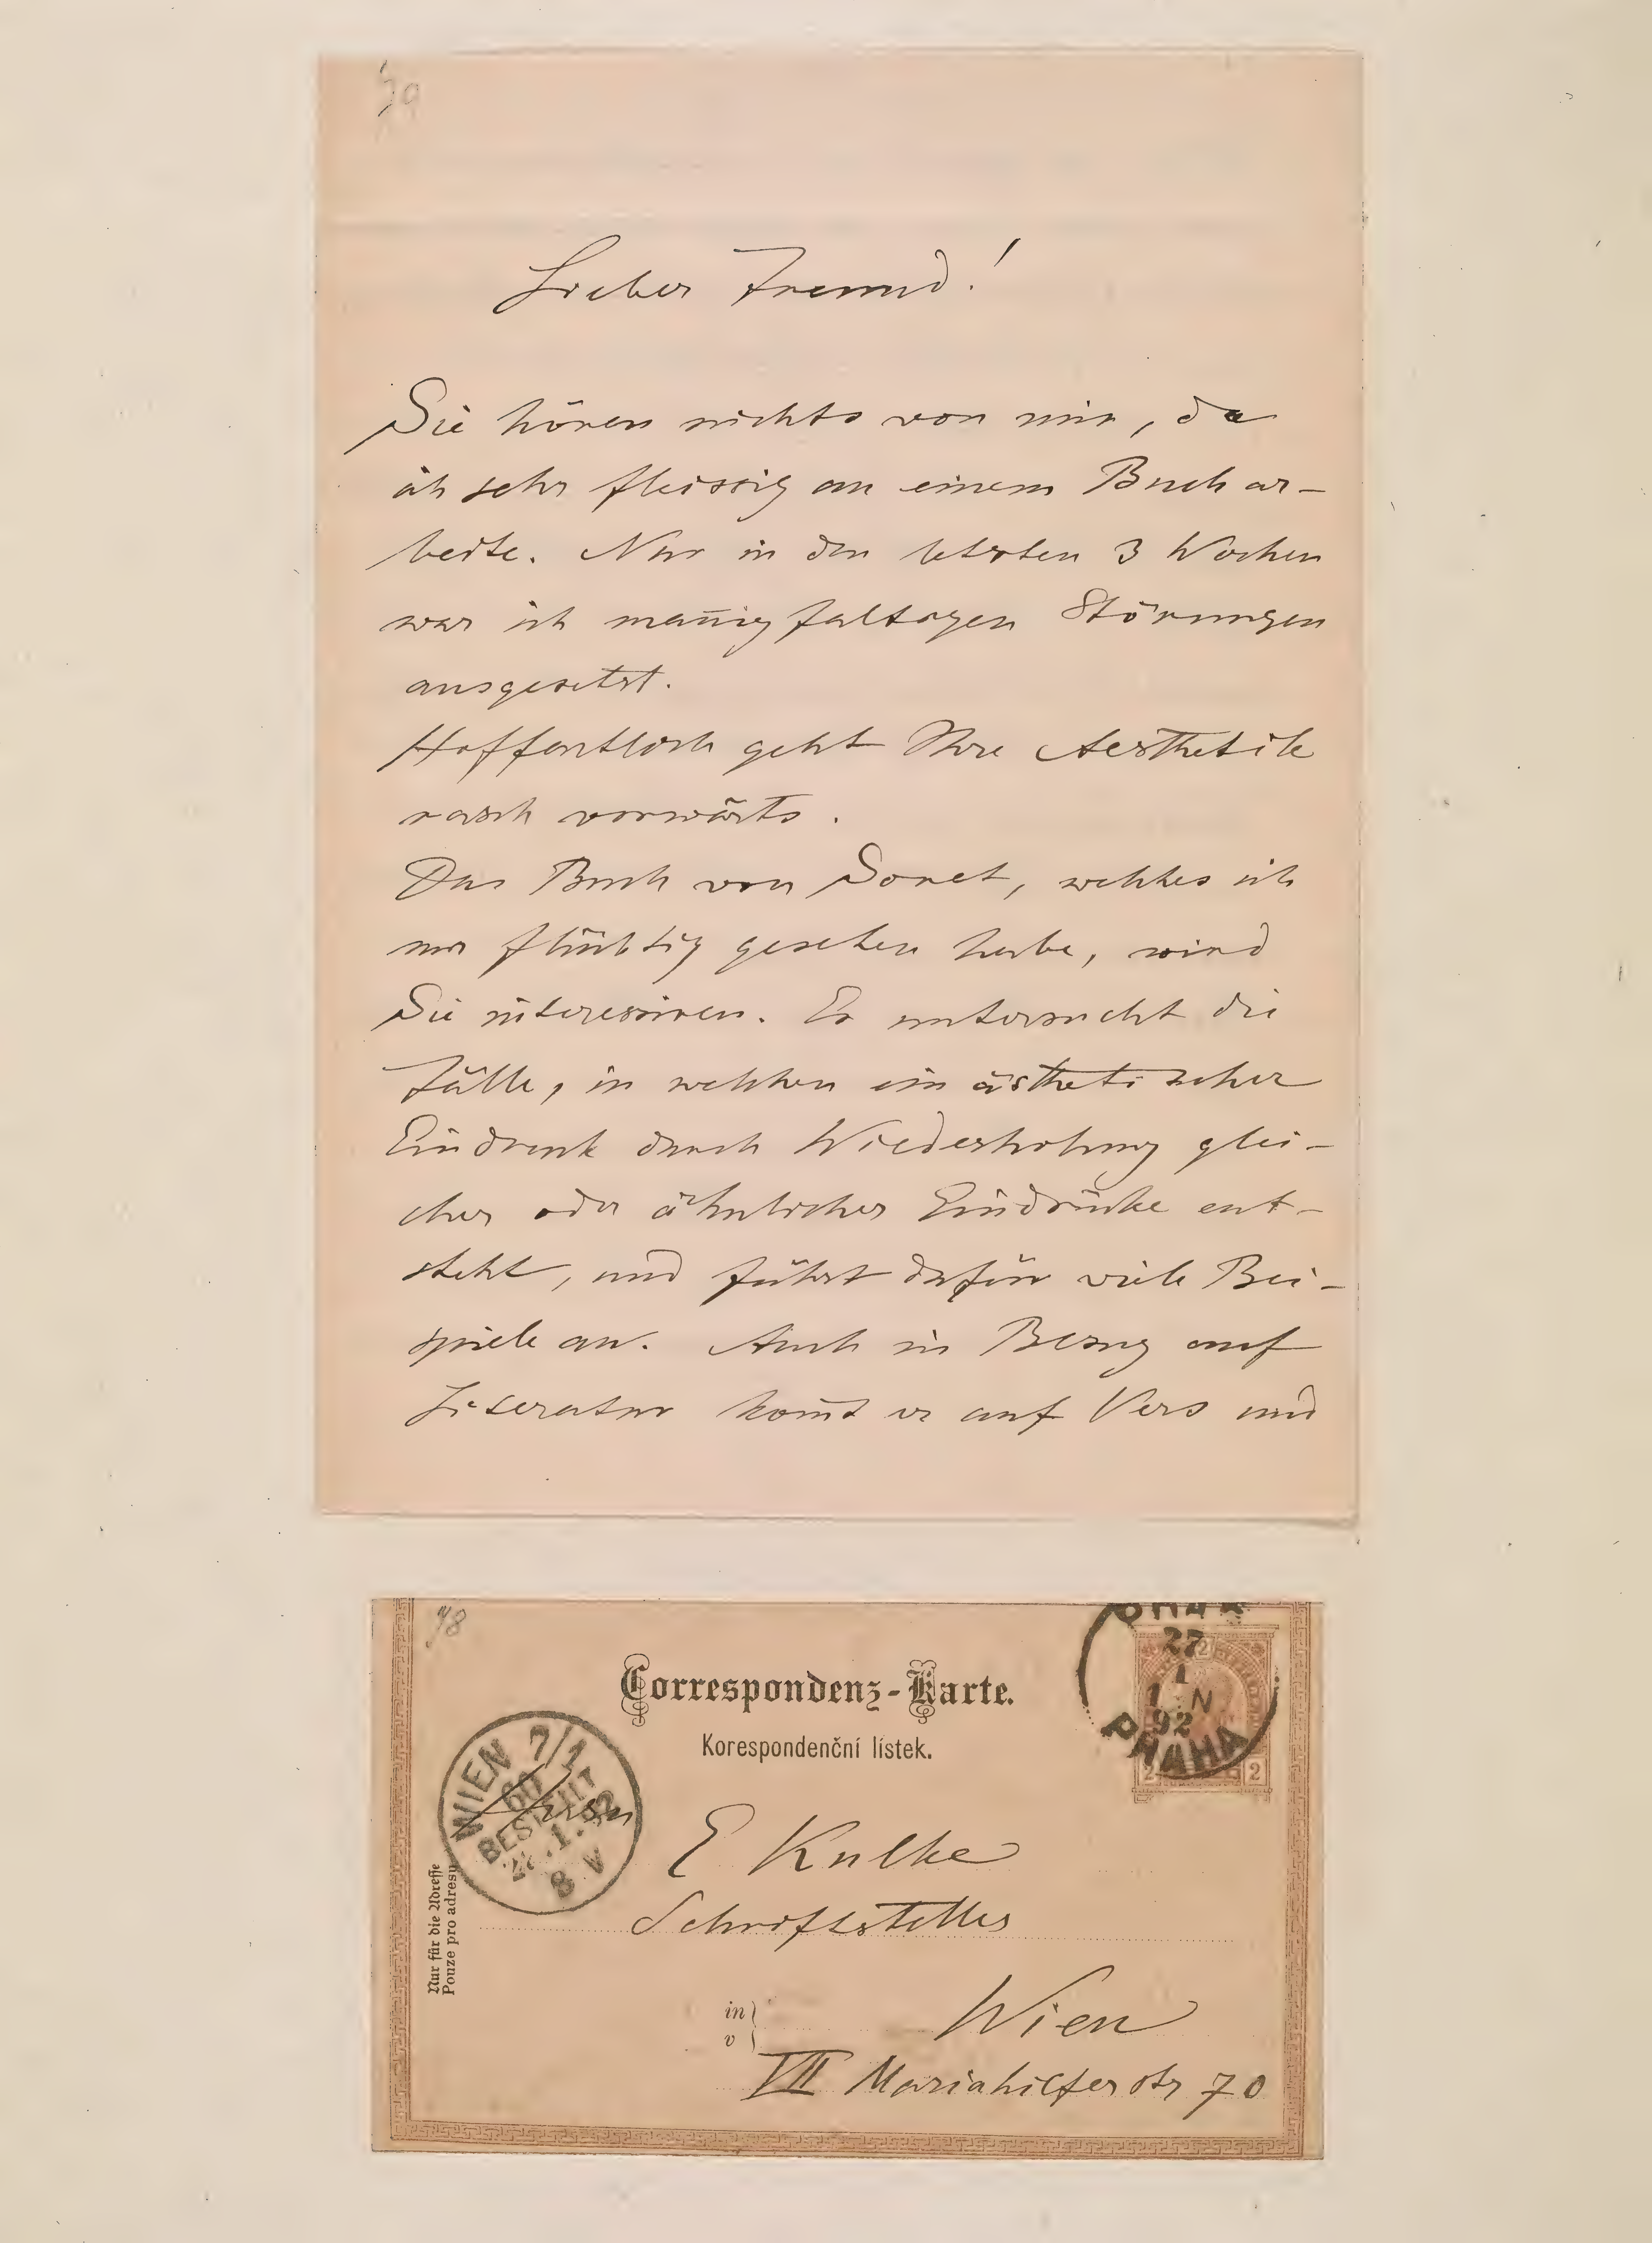 79
Lieber Freund!
Sie hören nichts von mir, da
ich sehr fleissig an einem Buch ar-
beite. Nur in den letzten 3 Wochen
war ich man̄igfaltigen Störungen
ausgesetzt.
Hoffentlich geht Ihre Aesthetik
rasch vorwärts.
Das Buch von Soret, welches ich
nur flüchtig gesehen habe, wird
Sie interessiren. Er untersucht die
Fälle, in welchen ein ästhetischer
Eindruck durch Wiederholung glei-
cher oder ähnlicher Eindrücke ent-
steht, und führt dafür viele Bei-
spiele an. Auch in Bezug auf
Literatur kom̄t er auf Vers und
78
PRAHA
27
1
1 N
92
PRAHA
2
2 2
Correspondenz-Karte.
Korespondenční lístek.
WIEN 7/1
BESTELLT
8 V
Herrn
E Kulke
Schriftsteller
in
v
Wien
VII Mariahilferstr 70
Nur für die Adresse
Pouze pro adresu